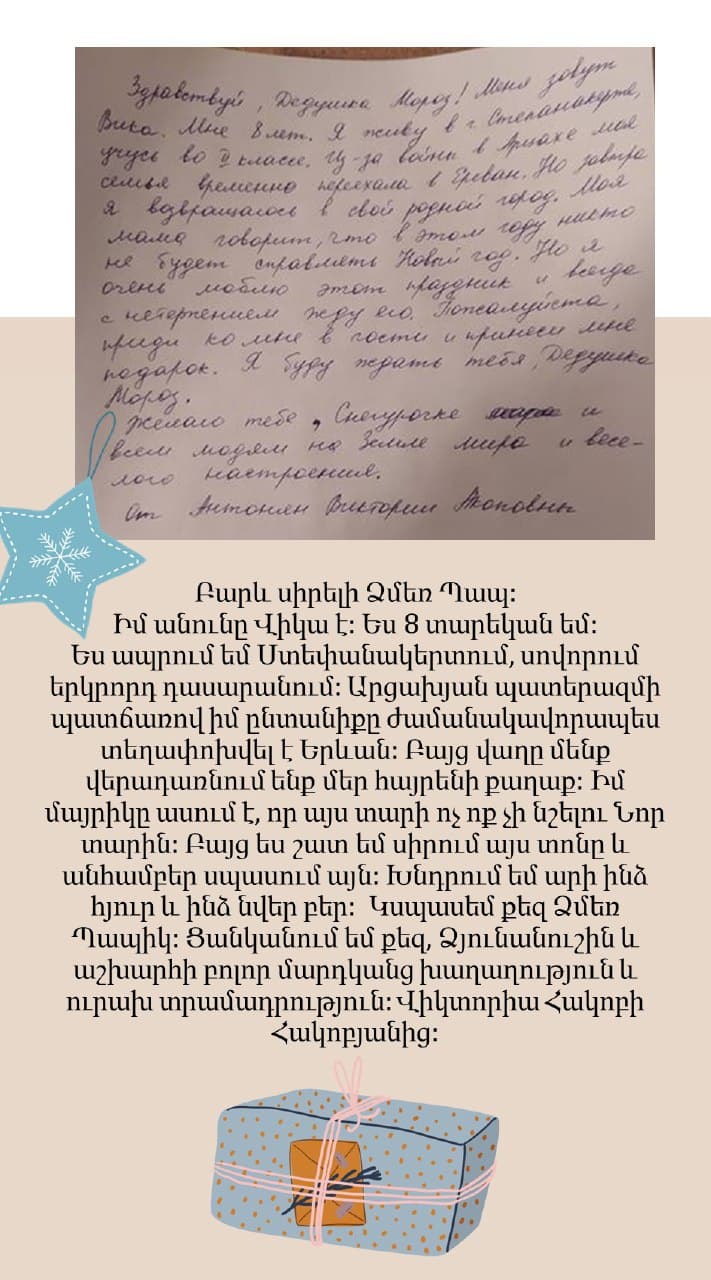 Здравствуй, Дедушка Мороз! Меня зовут
Вика. Мне 8 лет. Я живу в г. Степанакерте,
учусь во II классе. Из-за войны в Арцахе моя
семья временно переехала в Ереван. Но завтра
я возвращаюсь в свой родной город. Моя
мама говорит, что в этом году никто
не будет справлять Новый год. Но я
очень люблю этот праздник и всегда
с нетерпением жду его. Пожалуйста,
приди ко мне в гости и принеси мне
подарок. Я буду ждать тебя, Дедушка
Мороз.
Желаю тебе, Снегурочке и
всем людям на Земле мира и весе-
лого настроения.
От Антонян Виктории Акоповны
Բարև սիրելի Ձմեռ Պապ։
Իմ անունը Վիկա է։ Ես 8 տարեկան եմ։
Ես ապրում եմ Ստեփանակերտում, սովորում
երկրորդ դասարանում։ Արցախյան պատերազմի
պատճառով իմ ընտանիքը ժամանակավորապես
տեղափոխվել է Երևան։ Բայց վաղը մենք
վերադառնում ենք մեր հայրենի քաղաք։ Իմ
մայրիկը ասում է, որ այս տարի ոչ ոք չի նշելու Նոր
տարին։ Բայց ես շատ եմ սիրում այս տոնը և
անհամբեր սպասում այն։ Խնդրում եմ արի ինձ
հյուր և ինձ նվեր բեր։ Կսպասեմ քեզ Ձմեռ
Պապիկ։ Ցանկանում եմ քեզ, Ձյունանուշին և
աշխարհի բոլոր մարդկանց խաղաղություն և
ուրախ տրամադրություն։ Վիկտորիա Հակոբի
Հակոբյանից։